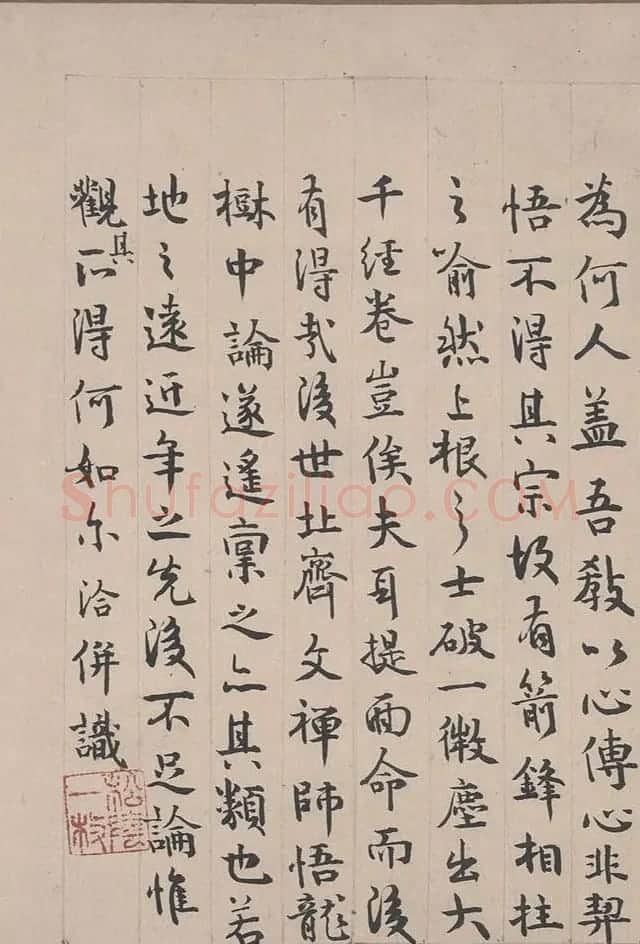 為何人盖吾教以心傳心非契
悟不得其宗故有箭鋒相拄
之喻然上根之士破一微塵出大
千经卷豈俟夫耳提面命而後
有得哉後世北齊文禅師悟龍
樹中論遂遥禀之亦其類也若
地之遠近年之先後不足論惟
觀其所得何如尔洽併識
松蔭一枚
Shufaziliao.COM